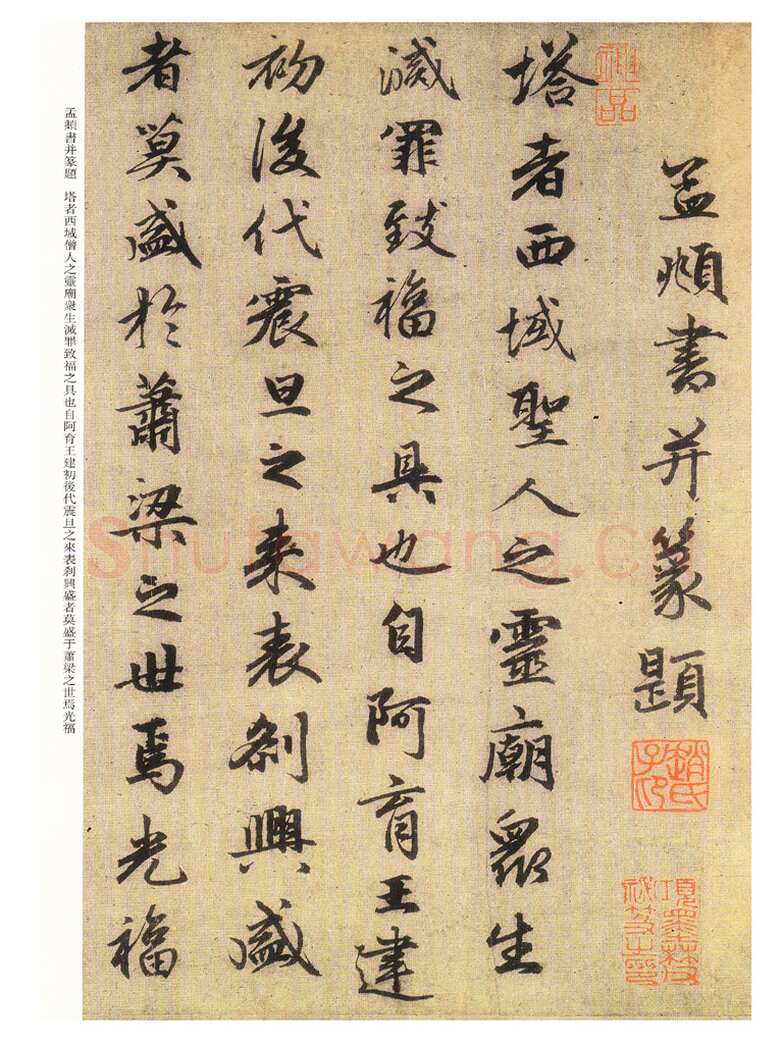 孟頫書并篆題
趙氏子印
塔者西域聖人之靈廟眾生
滅罪致福之具也自阿育王建
初後代震旦之来表刹興盛
者莫盛於蕭梁之世焉光福
孟頫書并篆題 塔者西域僧人之靈廟衆生滅罪致福之具也自阿育王建初後代震旦之來表刹興盛者莫盛于蕭梁之世焉光福
shufawang.cn